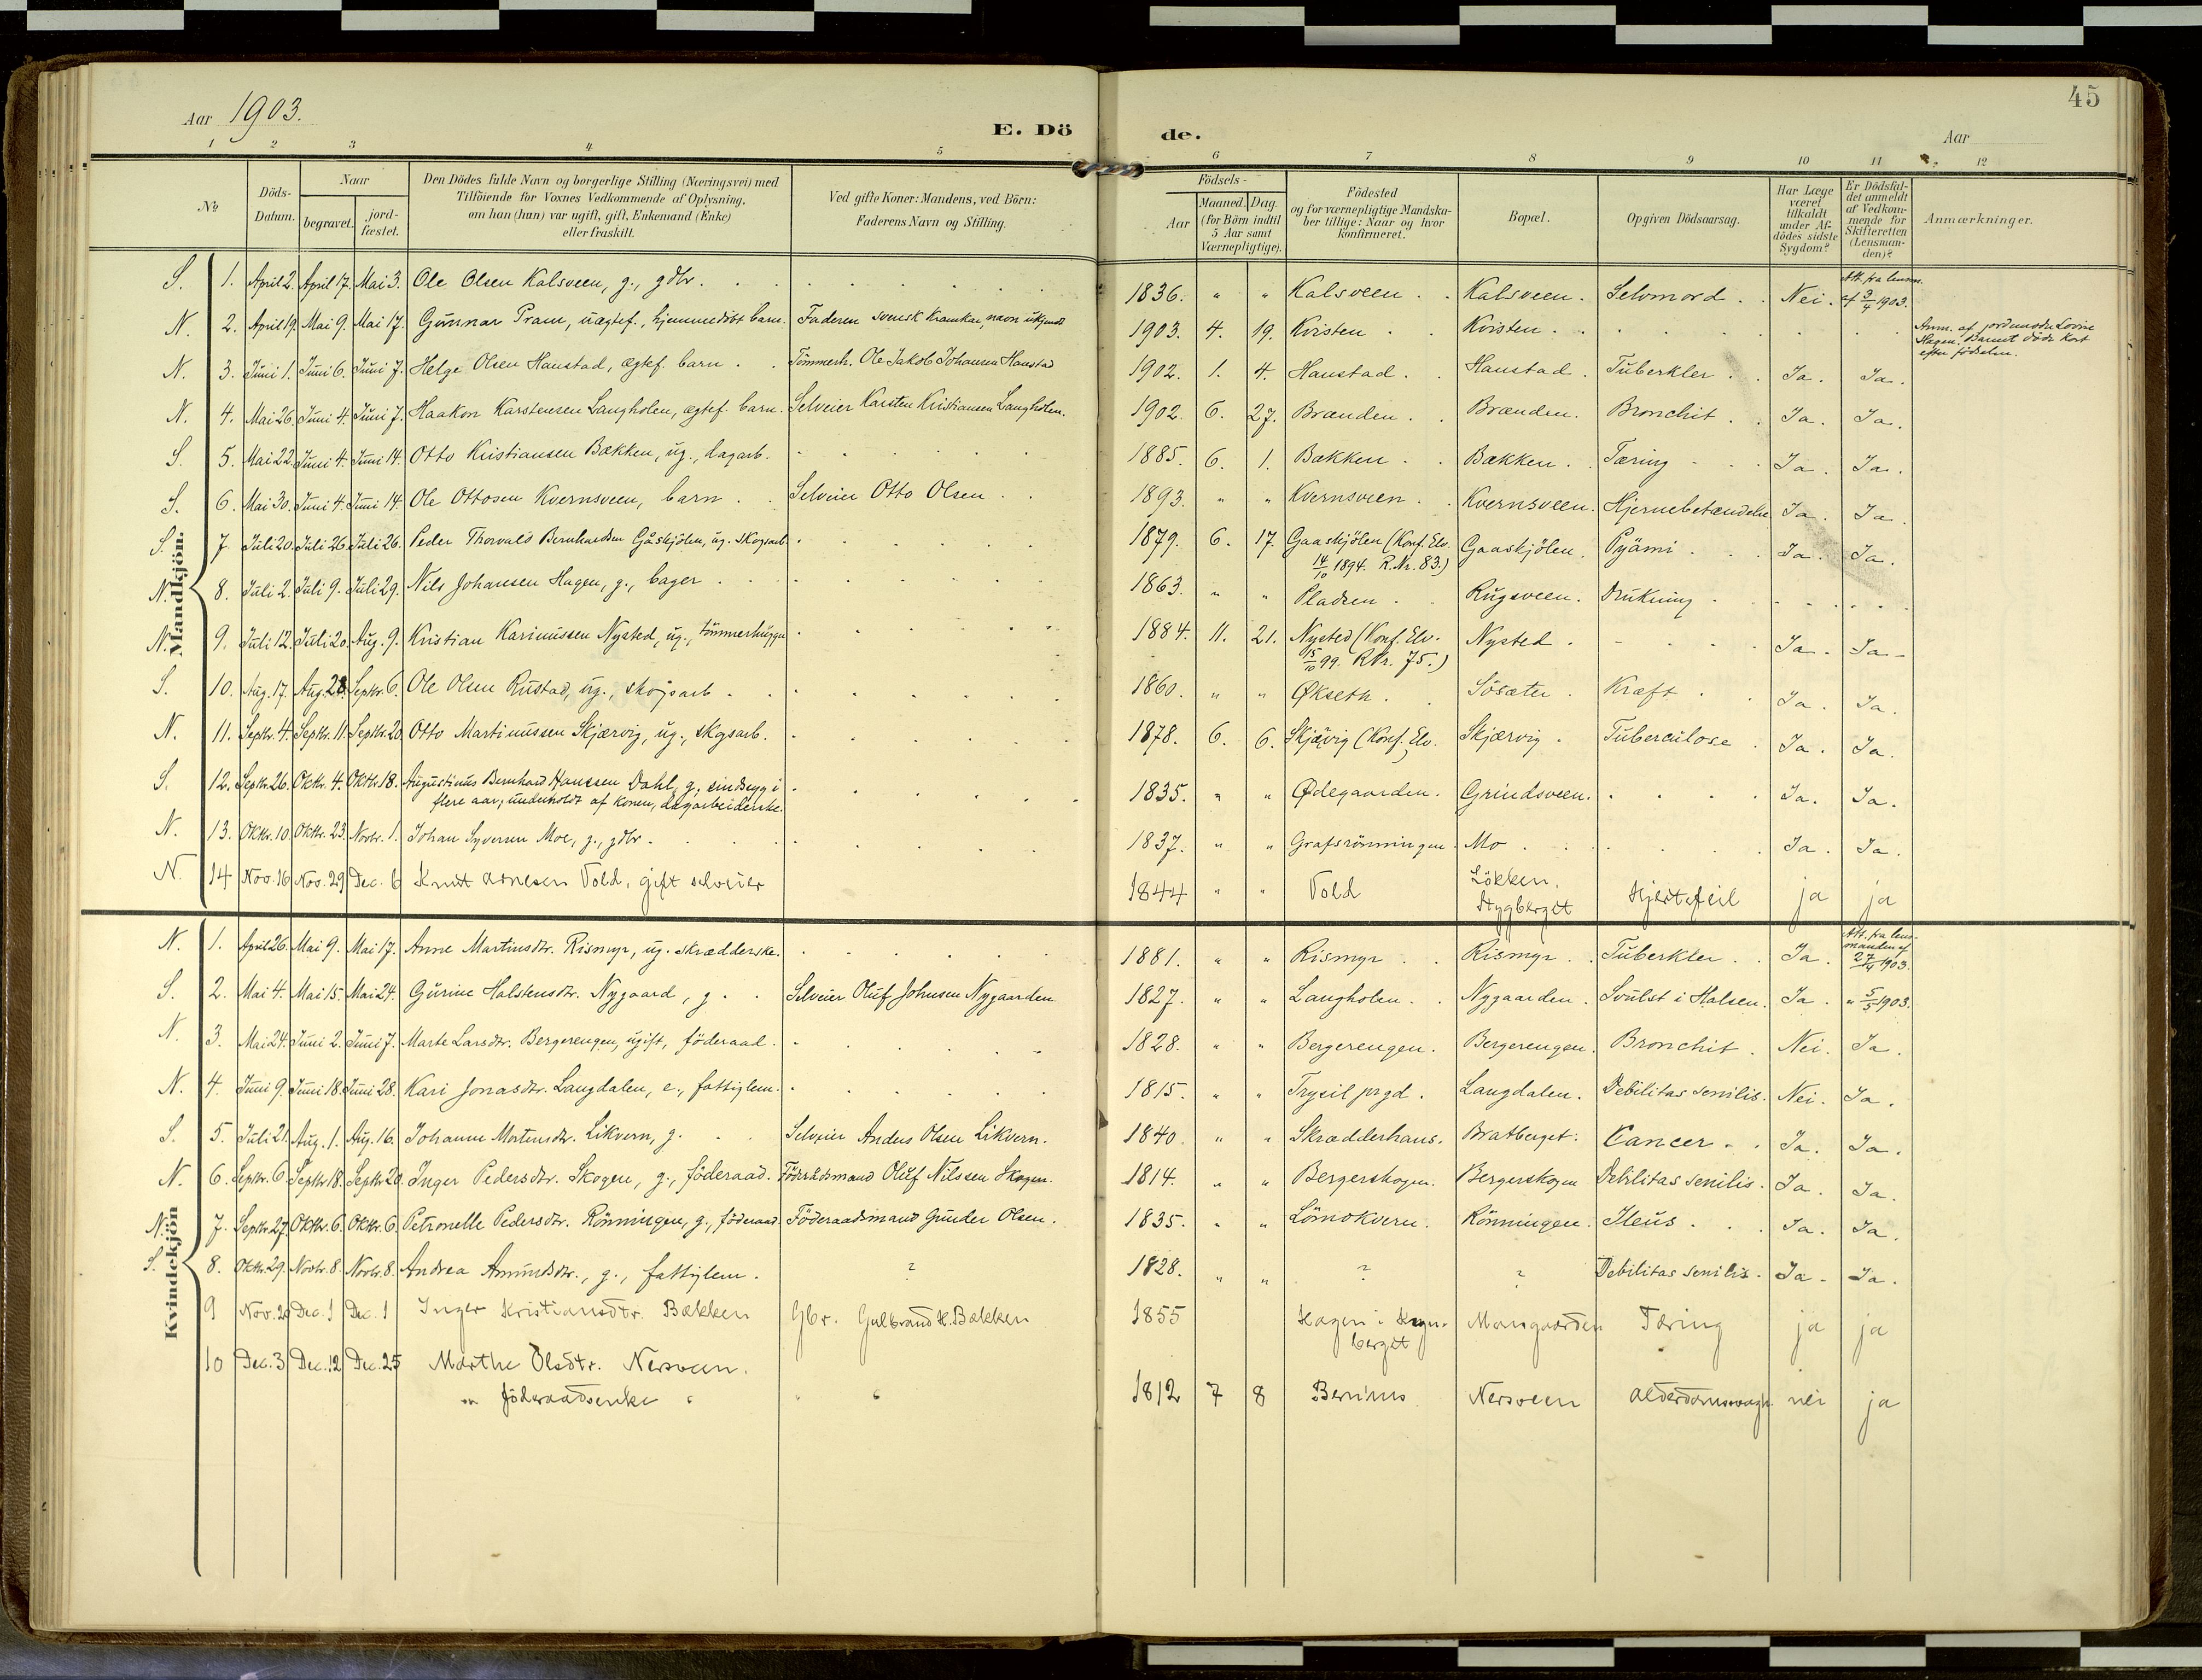 45
Aar 1903.
E. Dö de.
Aar
1 2 3 4 5 6 7 8 9 10 11 12
No
Döds-Datum.
Naar
begravet.
jord-fæstet.
Den Dödes fulde Navn og borgerlige Stilling (Næringsvei) med
Tilföiende for Voxnes Vedkommende af Oplysning,
om han (hun) var ugift, gift, Enkemand (Enke)
eller fraskilt.
Ved gifte Koner: Mandens, ved Börn:
Faderens Navn og Stilling.
Födsels-
Aar
Maaned. Dag.
(for Börn indtil
5 Aar samt
Værnepligtige).
Födested
og for værnepligtige Mandska-
ber tillige: Naar og hvor
konfirmeret.
Bopæl.
Opgiven Dödsaarsag.
Har Læge
været
tilkaldt
under Af-
dödes sidste
Sygdom?
Er Dödsfal-
det anmeldt
af Vedkom-
mende for
Skifteretten
(Lensman-
den)?
Anmærkninger.
Mandkjön.
S. 1. April 2. April 17. Mai 3. Ole Olsen Kalsveen, g., gdbr. 1836. " " Kalsveen. Kalsveen. Selvmord. Nei. Att. fra lensm. af 3/4 1903.
N. 2. April 19. Mai 9. Mai 17. Gunnar Pram, uægtef., hjemmedöbt barn. Faderen svensk kramkar, navn ukjendt 1903. 4. 19. Kvisten. Kvisten.
Anm. af jordemoder Lovise
Hagen. Barnet döde kort
efter födselen.
N. 3. Juni 1. Juni 6. Juni 7. Helge Olsen Hanstad, ægtef. barn. Tömmerh. Ole Jakob Johansen Hanstad 1902. 1. 4. Hanstad. Hanstad. Tuberkler. Ja. Ja.
N. 4. Mai 26. Juni 4. Juni 7. Haakon Karstensen Langholen, ægtef. barn. Selveier Karsten Kristiansen Langholen. 1902. 6. 27. Brænden. Brænden. Bronchit. Ja. Ja.
S. 5. Mai 22. Juni 4. Juni 14. Otto Kristiansen Bækken, ug., dagarb. 1885. 6. 1. Bækken. Bækken. Tæring. Ja. Ja.
S. 6. Mai 30. Juni 4. Juni 14. Ole Ottosen Kvernsveen, barn. Selveier Otto Olsen. 1893. " " Kvernsveen. Kvernsveen. Hjernebetændelse Ja. Ja.
S. 7 Juli 20. Juli 26. Juli 26. Peder Thorvald Bernhardsen Gåskjölen, ug. skogsarb. 1879. 6. 17. Gaaskjölen (Konf. Elv. 14/10 1894. R.Nr. 83.) Gaaskjölen. Pyämi. Ja. Ja.
N. 8. Juli 2. Juli 9. Juli 29. Nils Johansen Hagen, g., bager. 1863. " " Pladsen. Rugsveen. Drukning.
N. 9. Juli 12. Juli 20. Aug. 9. Kristian Karinussen Nysted, ug., tömmerhugger 1884. 11. 21. Nysted (Konf. Elv. 15/10 99. RNr. 75.) Nysted. Ja. Ja.
S. 10. Aug. 17. Aug. 28. Septbr. 6. Ole Olsen Rustad, ug., skogsarb. 1860. " " Økseth. Sösæter. Kræft. Ja. Ja.
N. 11. Septbr. 4. Septbr. 11. Septbr. 20. Otto Martinussen Skjærvig, ug., skogsarb. 1878. 6. 6. Skjævig (Konf. Elv. Skjærvig. Tuberculose. Ja. Ja.
S. 12. Septbr. 26. Oktbr. 4. Oktbr. 18. Augustinus Bernhard Hanssen Dahl, g., sindssyg i
flere aar, underholdt af konen, dagarbeiderske. 1835. " " Ødegaarden. Grindsveen. Ja. Ja.
N. 13. Oktbr. 10. Oktbr. 23. Novbr. 1. Johan Syversen Moe, g., gdbr. 1837. " " Grafsrönningen. Mo. Ja. Ja.
N. 14 Nov. 16 Nov. 29 Dec. 6 Knut Arnesen Vold, gift selveier 1844 " " Vold Lökken, Stygberget Hjertefeil ja ja
Kvindekjön
N. 1. April 26. Mai 9. Mai 17. Anne Martinsdtr. Rismyr, ug. skrædderske. 1881. " " Rismyr. Rismyr. Tuberkler. Ja. Att. fra lens-manden af 27/4 1903.
S. 2. Mai 4. Mai 15. Mai 24. Gurine Halstensdtr. Nygaard, g. Selveier Oluf Johnsen Nygaarden 1827. " " Langholen. Nygaarden. Svulst i Halsen. Ja. " 5/5 1903.
N. 3. Mai 24. Juni 2. Juni 7. Marte Larsdtr. Bergerengen, ugift, föderaad. 1828. " " Bergerengen. Bergerengen. Bronchit. Nei. Ja.
N. 4. Juni 9. Juni 18. Juni 28. Kari Jonasdtr. Langdalen, e., fattiglem. 1815. " " Trysil prgd. Langdalen. Debilitas senilis. Nei. Ja.
S. 5. Juli 21. Aug. 1. Aug. 16. Johanne Mortensdtr. Likvern, g. Selveier Anders Olsen Likvern. 1840 " " Skrædderhaus. Bratberget. Cancer. Ja. Ja.
N. 6. Septbr. 6. Septbr. 18. Septbr. 20. Inger Pedersdtr. Skogen, g., föderaad. Föderådsmand Oluf Nilssen Skogen. 1814. " " Bergerskogen. Bergerskogen Debilitas senilis. Ja. Ja.
N. 7. Septbr. 27. Oktbr. 6. Oktbr. 6. Petronelle Pedersdtr. Rönningen, g., föderaad. Föderaadsmand Gunder Olsen. 1835. " " Lömokvern. Rönningen. Ileus. Ja. Ja.
S. 8. Oktbr. 29. Novbr. 8. Novbr. 8. Andrea Amundsdtr., g., fattiglem. ? 1828. " " ? ? Debilitas senilis. Ja. Ja.
9 Nov. 20 Dec. 1 Dec. 1 Inger Kristiansdtr. Bækken Gbr. Gulbrand K. Bækken 1855 Hagen i berget Morsgaarden Tæring ja ja
10 Dec. 3 Dec. 12 Dec. 25 Marthe Olsdtr. Nersveen.
" föderaadsenke " " " 1812 7 8 Berinus Nersveen Alderdomssvagh. nei ja